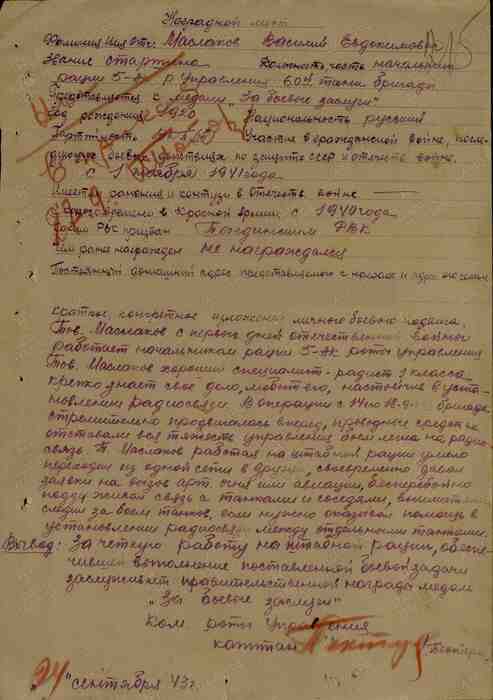 Наградной лист
Фамилия Имя Отч. Маслаков Василий Евдокимович
Звание старшина Должность часть начальник
рации 5-АК р. управления 60й танк бригады
Представляется к медали „За боевые заслуги"
Год рождения 1920 Национальность русский
Партийность Участие в гражданской войне, после-
дующие боевые действия по защите СССР и отечеств. войне.
с 1 ноября 1941 года
Имеет ли ранения и контузи в отечеств. войне —
С какого времени в Красной армии с 1940 года
Каким РВК призван РВК
Чем ранее награжден не награждался
Постоянный домашний адрес представляемого к наград. и адрес его семьи
Краткое, конкретное изложение личного боевого подвига.
Тов. Маслаков с первых дней отечественной войны
работает начальником рации 5-АК роты управления
Тов. Маслаков хороший специалист-радист 1 класса
крепко знает своё дело, любит его, настойчив в уста-
новлении радиосвязи. В операции с 14 по 18.9 бригада
стремительно продвигалась вперед, проводные средства
отставали вся тяжесть управления боем легла на радио-
связь. Т. Маслаков работая на штабной рации умело
переходил из одной сети в другую, своевременно давал
заявки на вызов арт. огня или авиации, бесперебойно
поддерживал связь с танками и соседями, внимательно
следил за боем танков, если нужно оказывал помощь в
установлении радиосвязи между отдельными танками.
Вывод: За четкую работу на штабной рации, обеспе-
чившей выполнение поставленной боевой задачи
заслуживает правительственной награды медаль
„За боевые заслуги"
Ком. роты управления
капитан
24 „сентября 43 г.